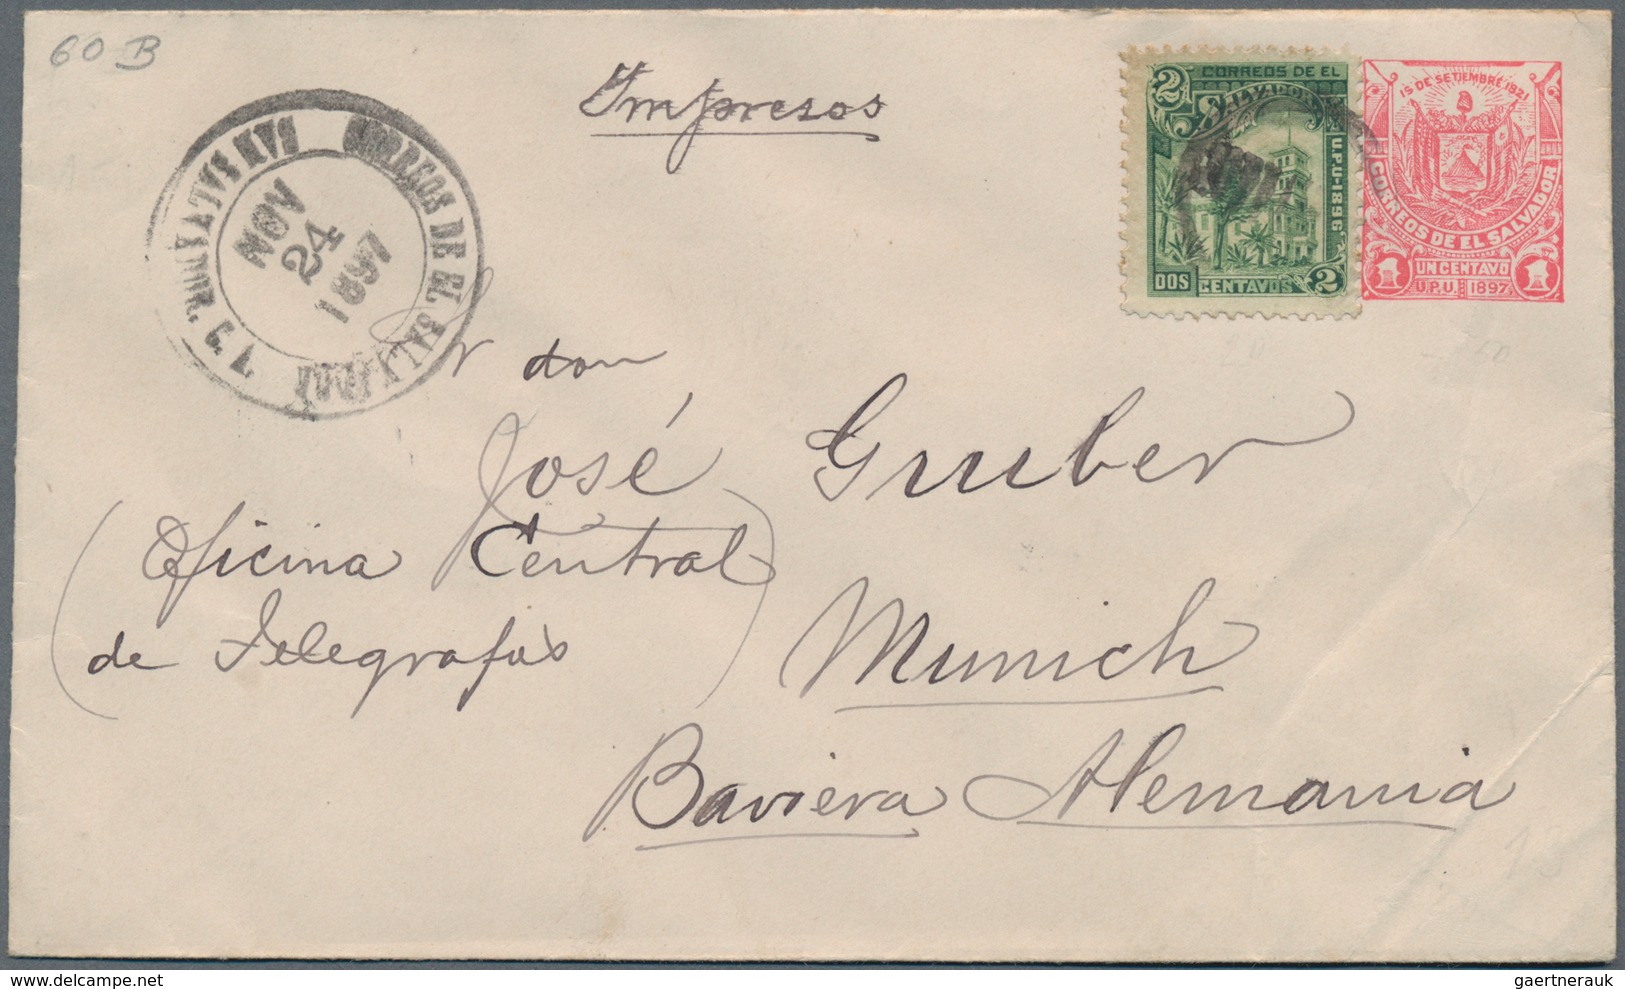 60 B
Impresos
CORREOS DE EL SALVADOR
SAN SALVADOR. C. A.
NOV
24
1897
2
CORREOS DE EL
SALVADOR
U.P.U-1896
DOS
CENTAVOS
2
15 DE SETIEMBRE 1821
CORREOS DE EL SALVADOR
1
UN CENTAVO
U.P.U. 1897
1
Sr don
José Gruber
(Oficina Central
de Telegrafos)
Munich
Baviera Alemania
13
gaertnerauk